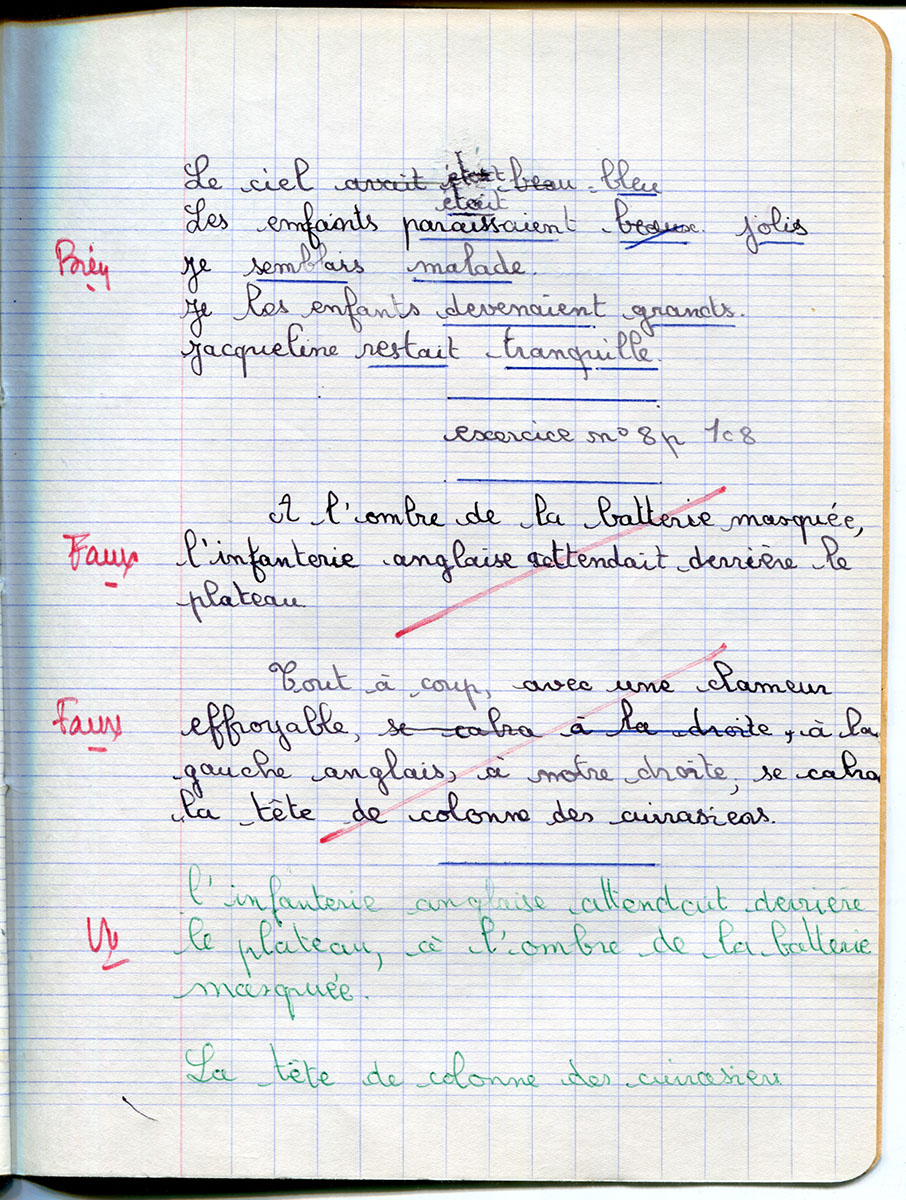 Le ciel avait était beau bleu
était
Les enfaints paraissaient beaux. jolis
Bien je semblais malade.
je les enfants devenaient grands.
jacqueline restait tranquille.
exercice n° 8 p 108
A l'ombre de la batterie masquée,
Faux l'infanterie anglaise attendait derrière le
plateau
Tout à coup, avec une clameur
Faux effroyable, se cabra à la droite, à la
gauche anglais, à notre droite, se cabra
la tête de colonne des cuirasiers.
l'infanterie anglaise attendait derrière
Vu le plateau, à l'ombre de la batterie
masquée.
La tête de colonne des cuirasiers